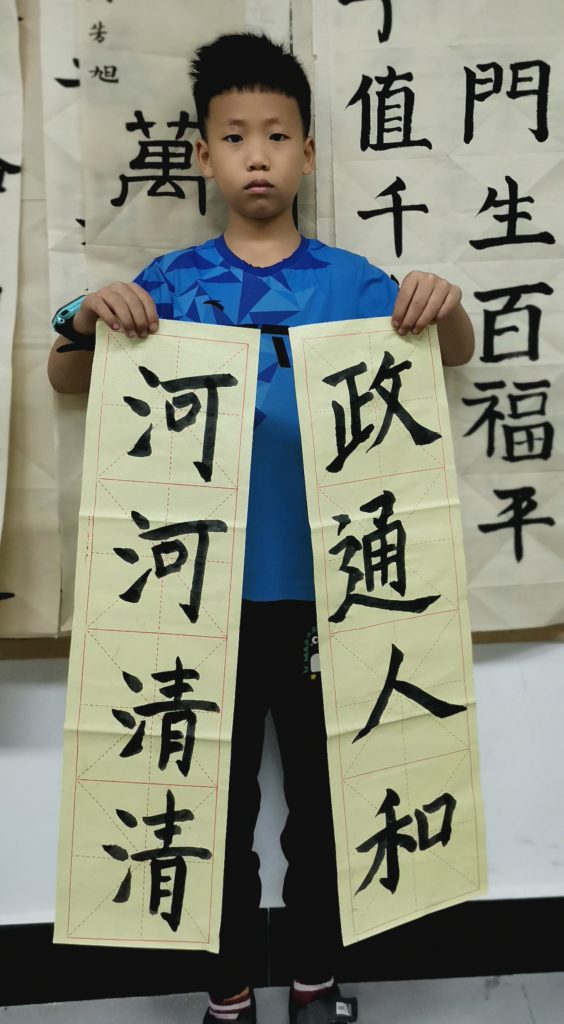 門生百福平
值千
政通人和
河河清清
萬
旭